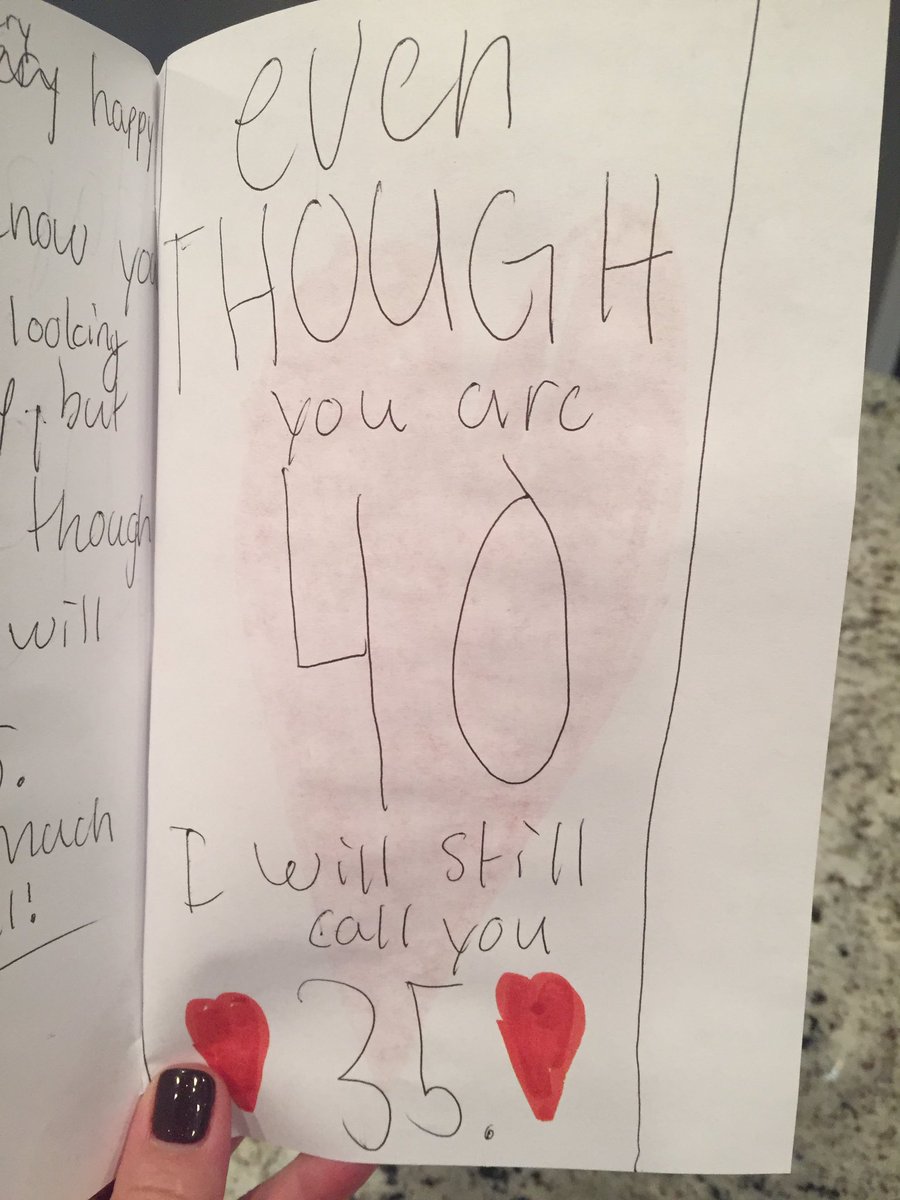 happy
know you
looking
, but
though
will
.
much
!
even
THOUGH
you are
40
I will still
call you
35.